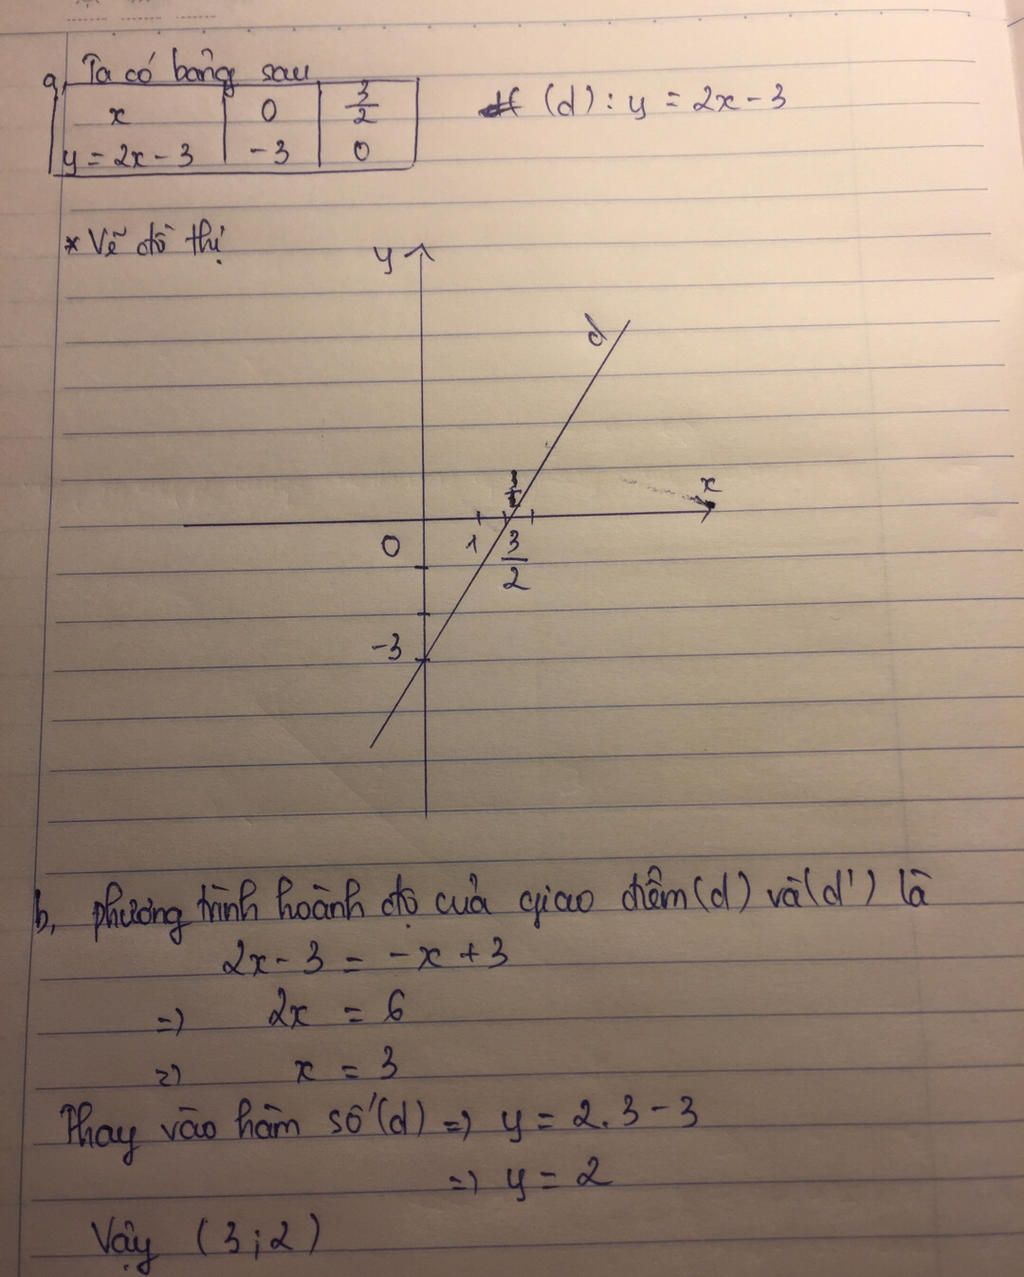 a, Ta có bảng sau
x 0 3/2
(d): y = 2x - 3
y = 2x - 3 -3 0
* Vẽ đồ thị
y
d
x
0 1 3/2
-3
b, phương trình hoành độ của giao điểm (d) và (d') là
2x - 3 = -x + 3
=) 2x = 6
=) x = 3
Thay vào hàm số (d) =) y = 2.3 - 3
=) y = 2
Vậy (3;2)